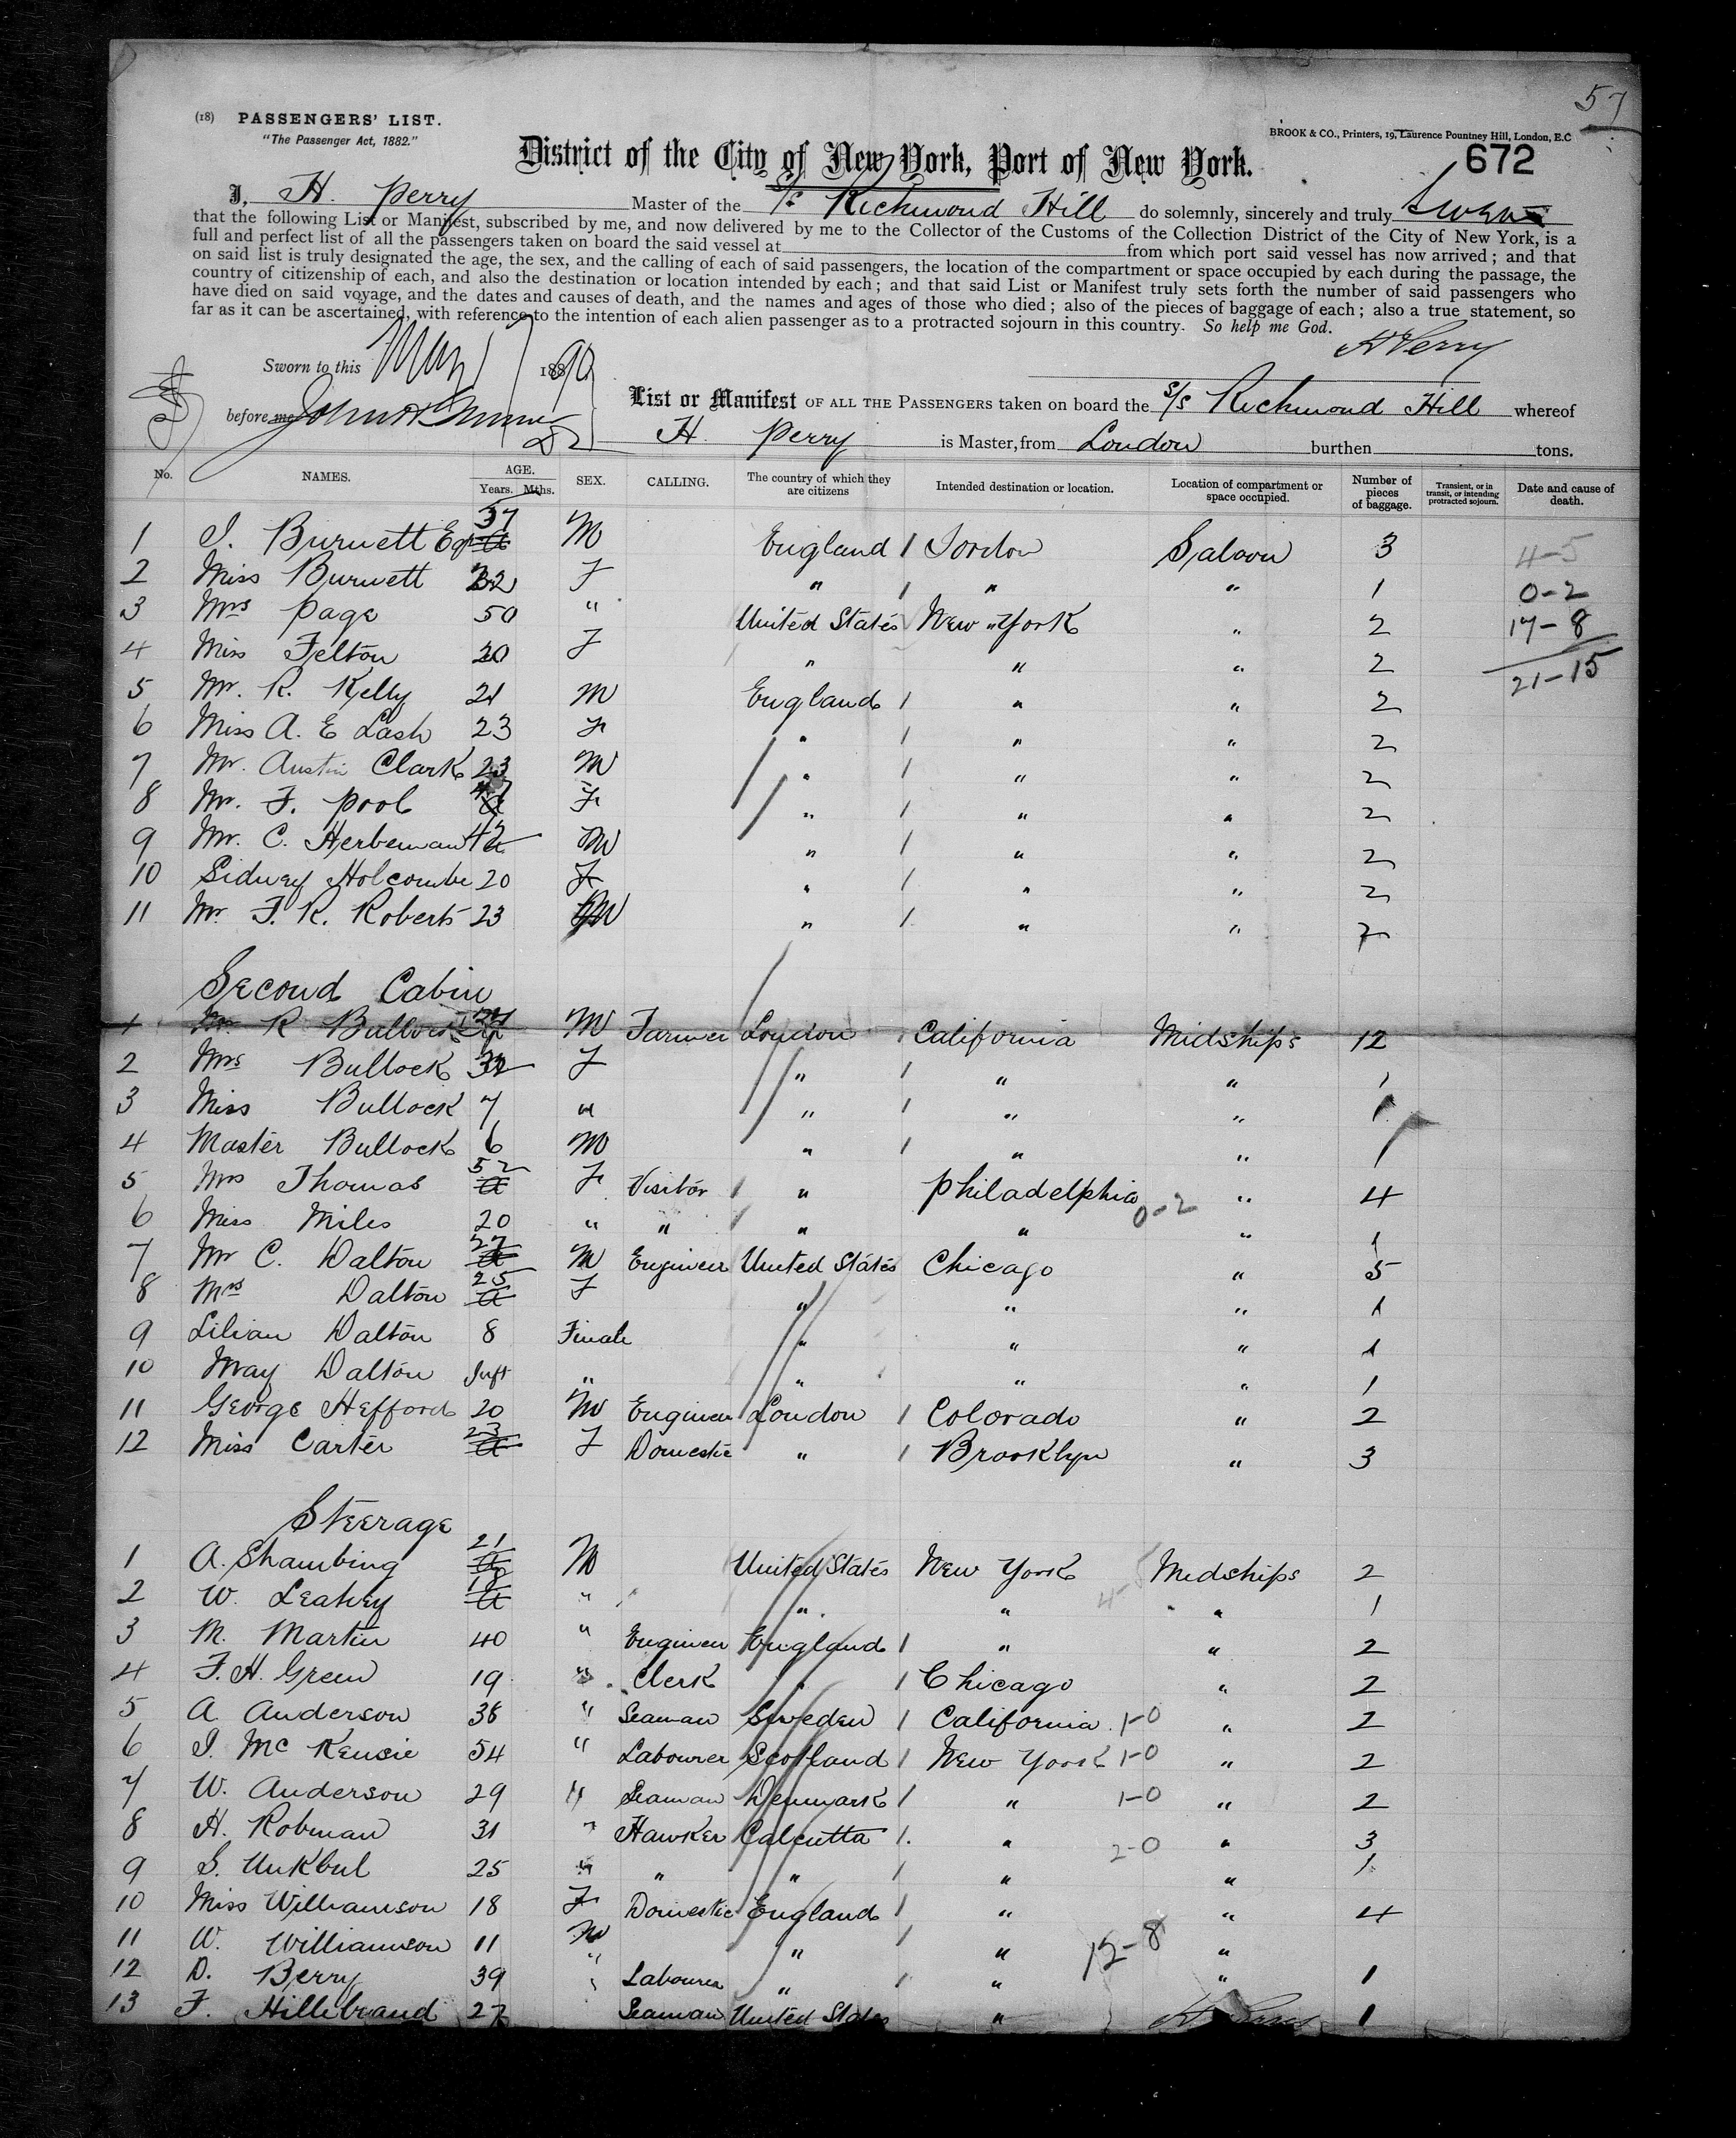 57
(18) PASSENGERS' LIST.
"The Passenger Act, 1882."
BROOK & CO., Printers, 19, Laurence Pountney Hill, London, E.C
672
District of the City of New York, Port of New York.
I, H. Perry Master of the s/s Richmond Hill do solemnly, sincerely and truly swear
that the following List or Manifest, subscribed by me, and now delivered by me to the Collector of the Customs of the Collection District of the City of New York, is a
full and perfect list of all the passengers taken on board the said vessel at from which port said vessel has now arrived; and that
on said list is truly designated the age, the sex, and the calling of each of said passengers, the location of the compartment or space occupied by each during the passage, the
country of citizenship of each, and also the destination or location intended by each; and that said List or Manifest truly sets forth the number of said passengers who
have died on said voyage, and the dates and causes of death, and the names and ages of those who died; also of the pieces of baggage of each; also a true statement, so
far as it can be ascertained, with reference to the intention of each alien passenger as to a protracted sojourn in this country. So help me God.
H Perry
Sworn to this May 17 1890
before me John
List or Manifest OF ALL THE PASSENGERS taken on board the s/s Richmond Hill whereof
H. Perry is Master, from London burthen tons.
No. NAMES. AGE. Years. Mths. SEX. CALLING. The country of which they are citizens Intended destination or location. Location of compartment or space occupied. Number of pieces of baggage. Transient, or in transit, or intending protracted sojourn. Date and cause of death.
1 J. Burnett Esq 57 M England 1 London Saloon 3 4-5
2 Miss Burnett 22 F " 1 " " 1 0-2
3 Mrs Page 50 " United States New York " 2 17-8
4 Miss Felton 20 F " " " 2 21-15
5 Mr. R. Kelly 21 M England 1 " " 2
6 Miss A. E Lash 23 F " 1 " " 2
7 Mr. Austin Clark 23 M " 1 " " 2
8 Mr. F. Pool 47 F " 1 " " 2
9 Mr. C. Herbeman 42 M " 1 " " 2
10 Sidney Holcombe 20 F " 1 " " 2
11 Mr F. R. Roberts 23 M " 1 " " 7
Second Cabin
1 Mr R Bullock 34 M Farmer London 1 California Midships 12
2 Mrs Bullock 32 F " 1 " " 1
3 Miss Bullock 7 " " 1 " " 1
4 Master Bullock 6 M " 1 " " 1
5 Mrs Thomas 52 F Visitor 1 " Philadelphia 0-2 " 4
6 Miss Miles 20 " " 1 " " " 1
7 Mr C. Dalton 27 M Engineer United States Chicago " 5
8 Mrs Dalton 25 F " " " 1
9 Lilian Dalton 8 Female " " " 1
10 May Dalton Inft " " " " 1
11 George Hefford 20 M Engineer London 1 Colorado " 2
12 Miss Carter 23 F Domestic " 1 Brooklyn " 3
Steerage
1 A. Shambing 21 M United States New York Midships 2
2 W. Leahey 18 " " " 4-5 " 1
3 M. Martin 40 " Engineer England 1 " " 2
4 F. H. Green 19 " Clerk 1 Chicago " 2
5 A. Anderson 38 " Seaman Sweden 1 California 1-0 " 2
6 J. McKensie 54 " Labourer Scotland 1 New York 1-0 " 2
7 W. Anderson 29 " Seaman Denmark 1 " 1-0 " 2
8 H. Robman 31 " Hawker Calcutta 1 " 2-0 " 3
9 S. Unkbul 25 " " " 1 " " 1
10 Miss Williamson 18 F Domestic England 1 " " 4
11 W. Williamson 11 M " 1 " 12-8 "
12 D. Berry 39 " Labourer " 1 " " 1
13 F. Hillebrand 27 Seaman United States " 1